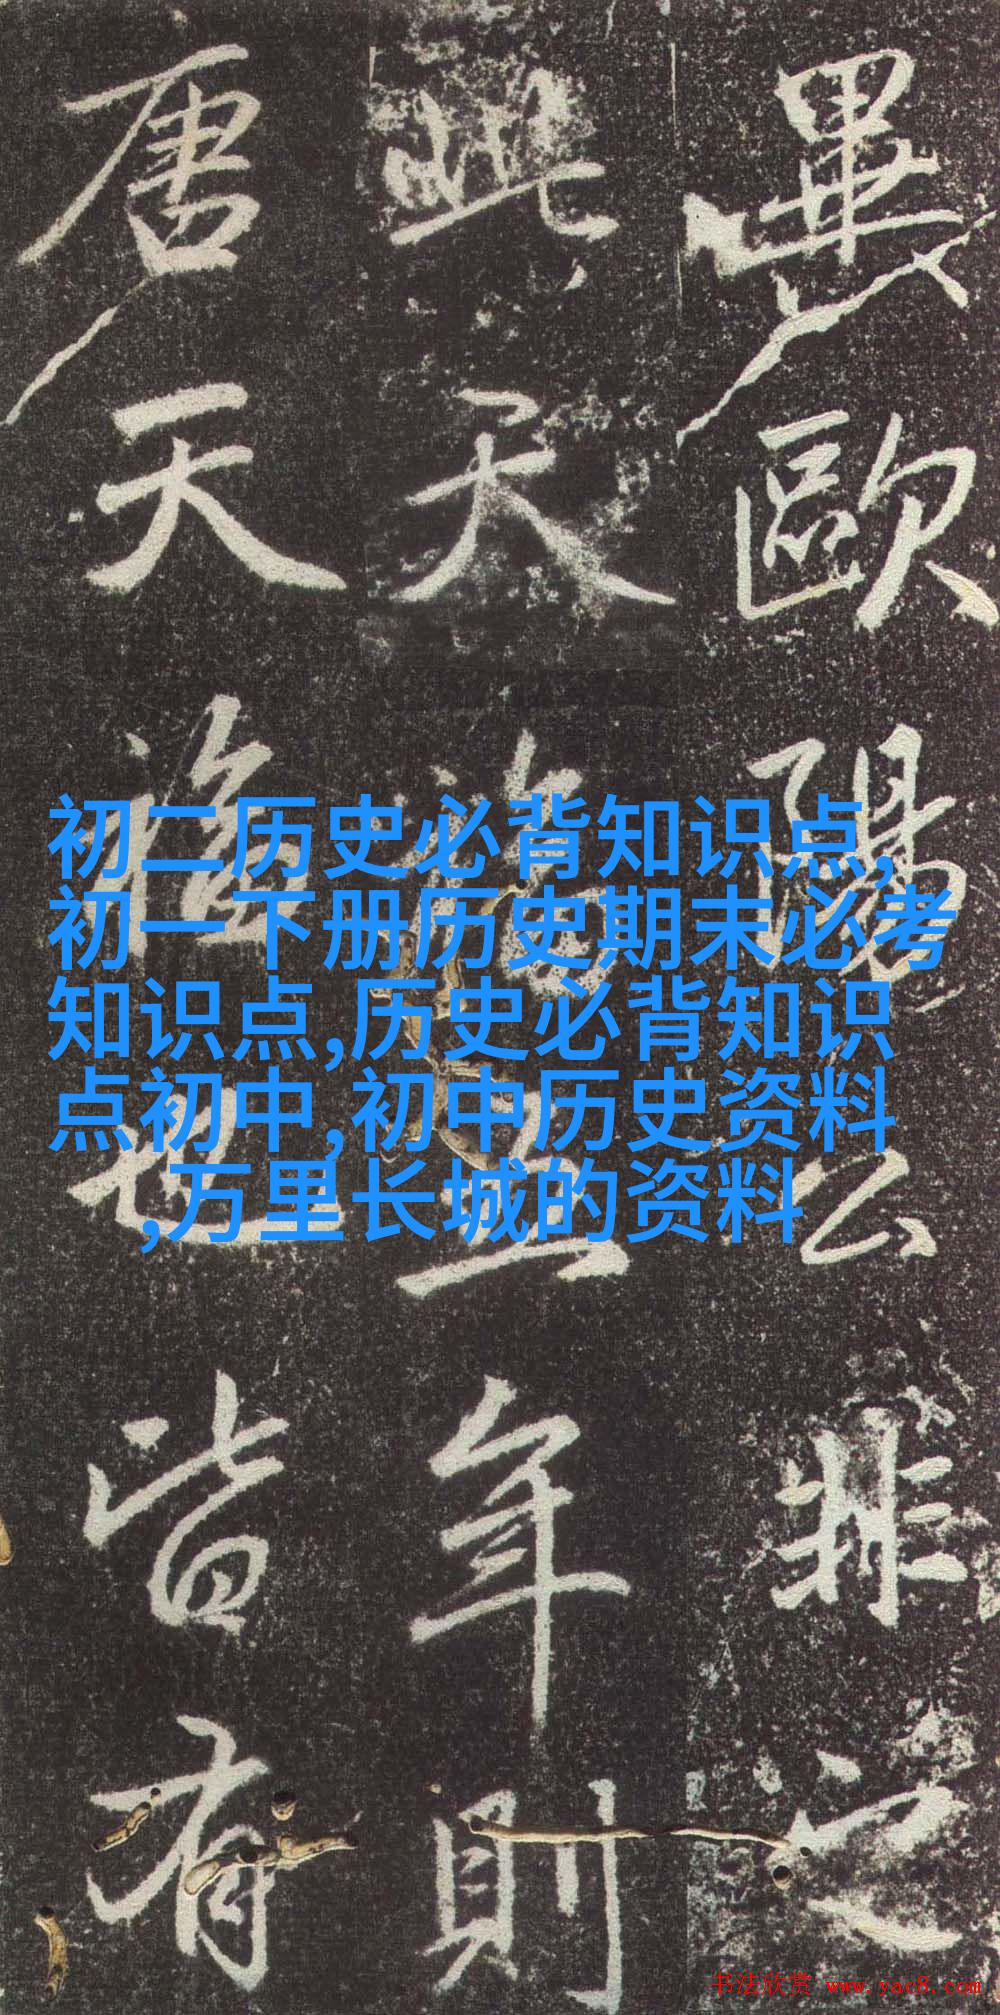 畢歐陽公非之
此天五年則
唐天也皆有
初二历史必背知识点,
初一下册历史期末必考
知识点,历史必背知识
点初中,初中历史资料
,万里长城的资料
书法欣赏 www.yac8.com